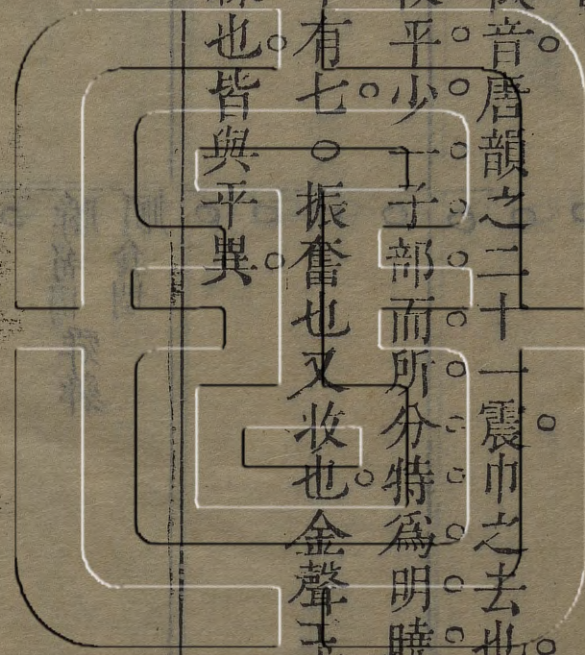 音唐韻之二十一震巾之去也
平少一子部而所分特爲明曉
有七○振奮也又收也金聲玉
也皆與平異